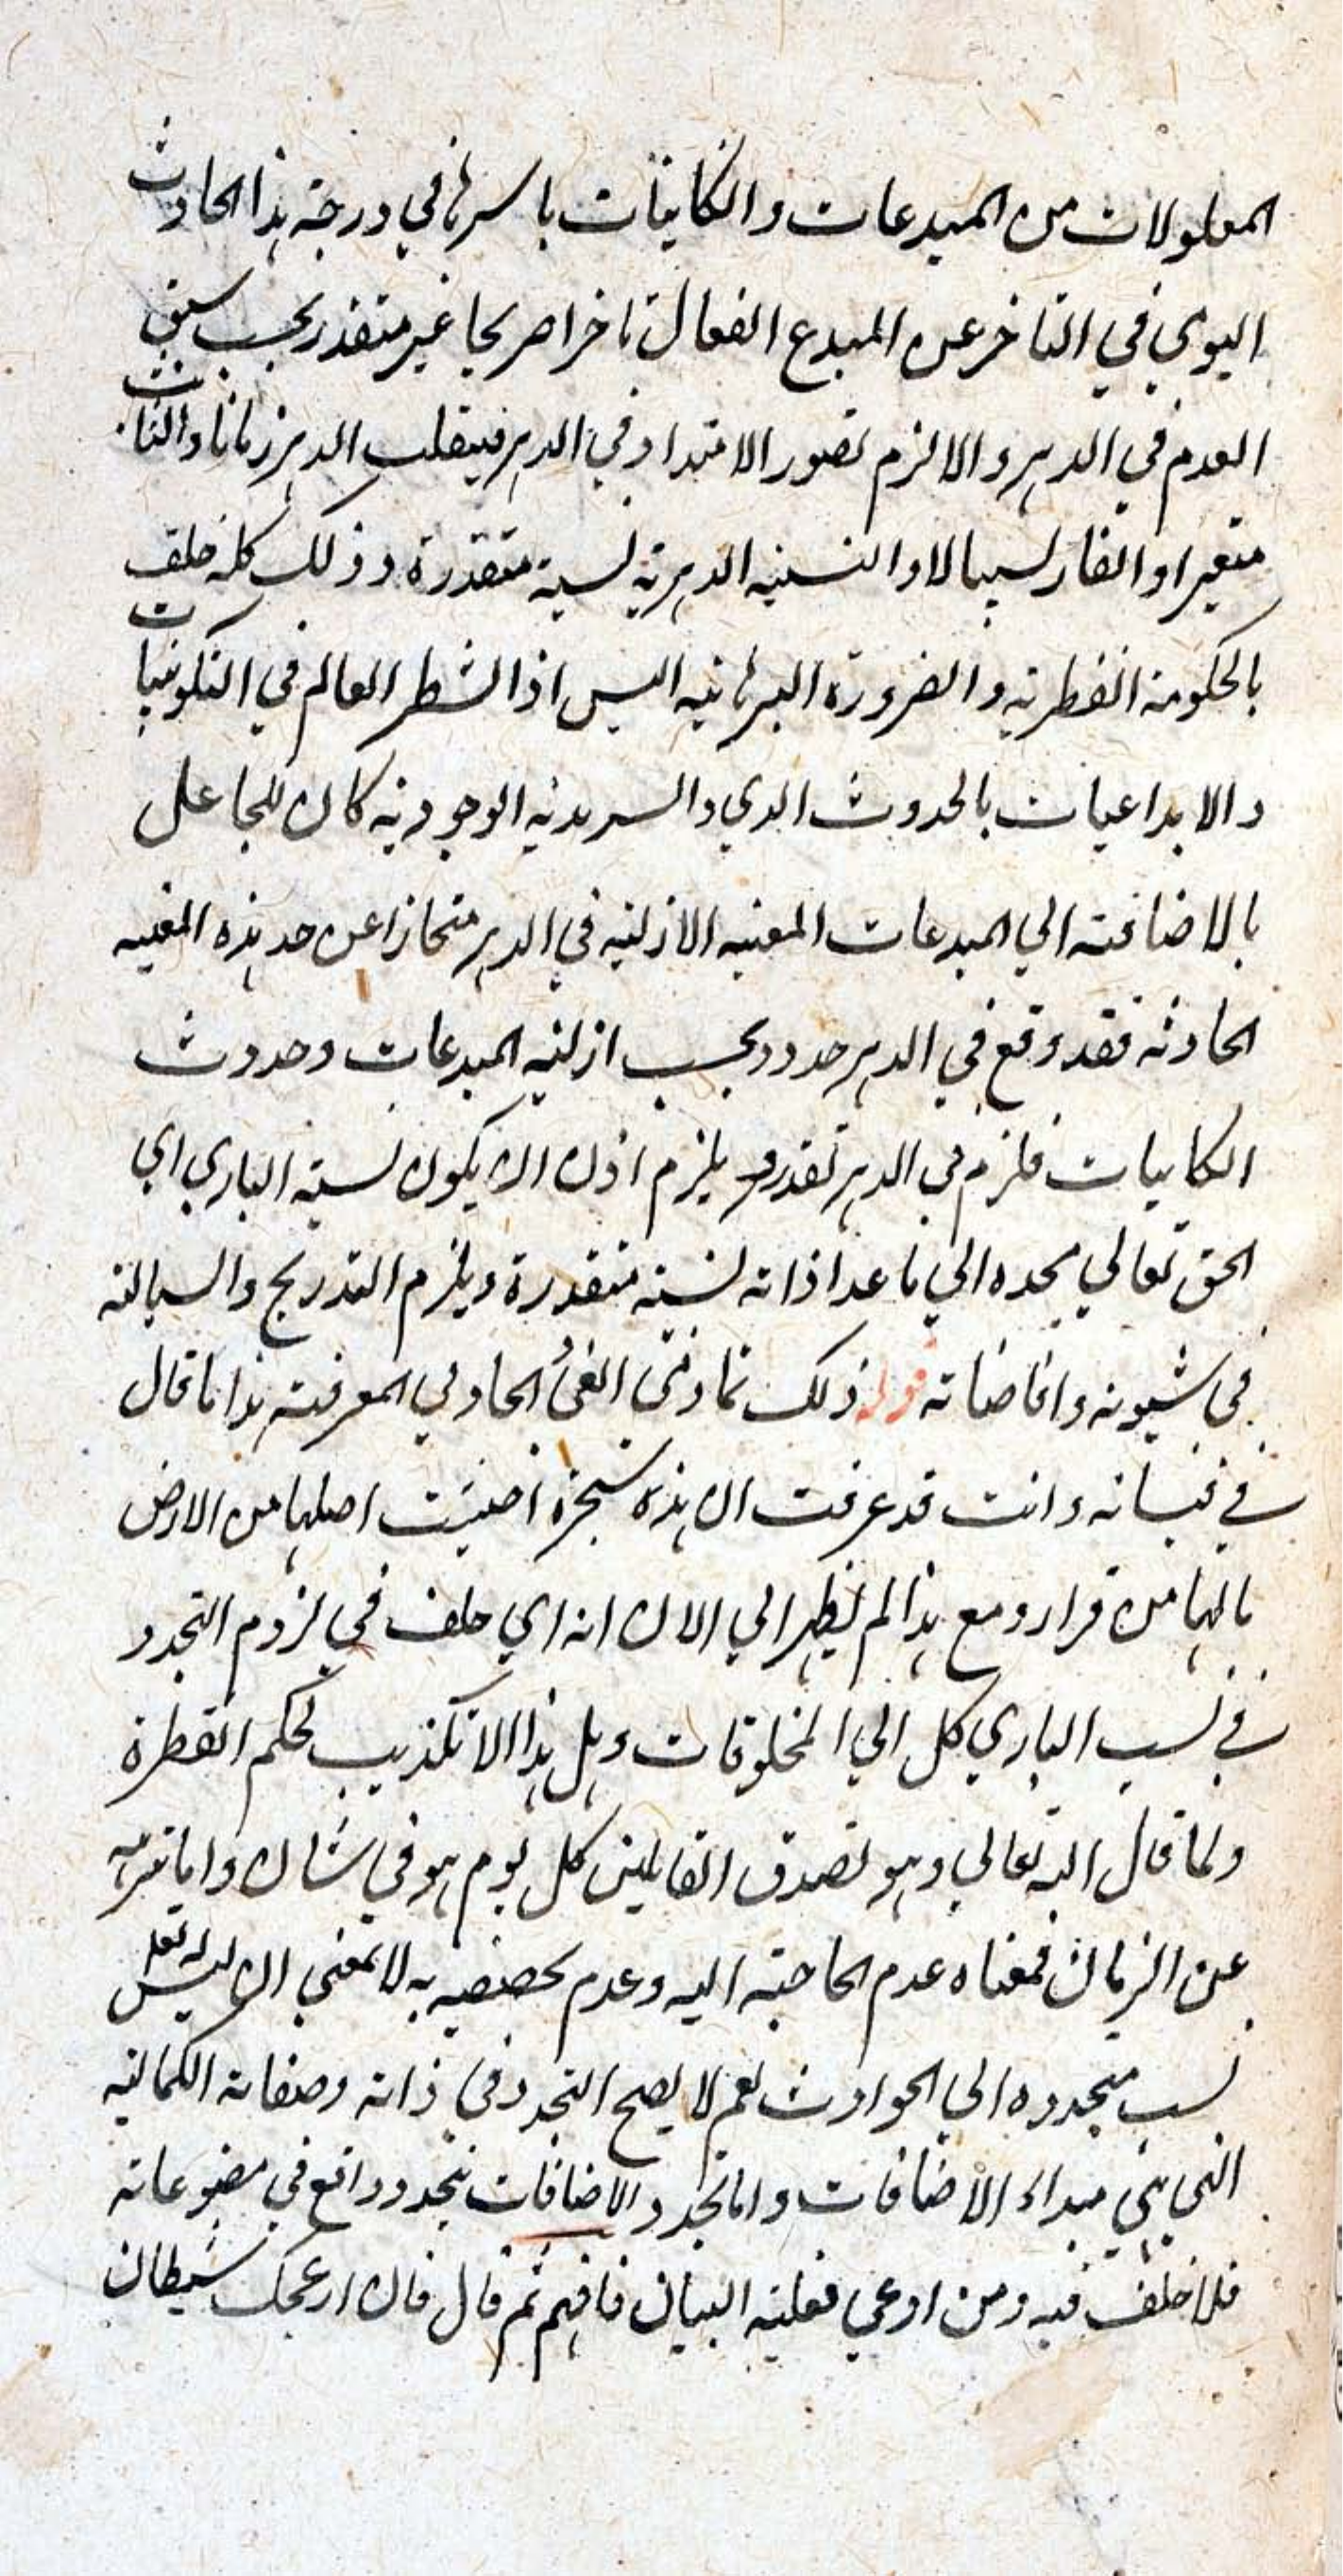 المعلولات من المبدعات والكاينات باسرها في درجة هذا الحادث
اليومي في التاخر عن المبدع الفعال تاخرا صريحا غير متقدر بحسب سبق
العدم في الدهر والا لزم تصور الامتداد في الدهر فينقلب الدهر زمانا والثابت
متغيرا والقار سيالا والنسبة الدهرية نسبة متقدرة وذلك كله خلف
بالحكومة الفطرية والضرورة البرهانية اليس اذا انشطر العالم في التكوينيات
والابداعيات بالحدوث الدهري والسرمدية الوجودية كان للجاعل
بالاضافة الي المبدعات المعية الازلية في الدهر منحازا عن حد هذه المعية
الحادثة فقد وقع في الدهر حدود بحسب ازلية المبدعات وحدوث
الكاينات فلزم في الدهر تقدر ويلزم اذن ان يكون نسبة الباري اي
الحق تعالي مجده الي ما عدا ذاته نسبة متقدرة ويلزم التدريج والسيالية
في شيونه وافاضاته قوله ذلك تمادي الغي الحاد لي المعرفة هذا ما قال
في قبساته وانت قد عرفت ان هذه شجرة اجتثت اصلها من الارض
مالها من قرار ومع هذا لم يظهر الي الان انه اي خلف في لزوم التجدد
في نسب الباري كل الي المخلوقات وهل هذا الا تكذيب لحكم الفطرة
ولما قال الله تعالي وهو تصدق القايلين كل يوم هو في شان واما تنزيهه
عن الزمان فمعناه عدم الحاجة اليه وعدم تخصصه به لا بمعني ان ليس له تعالى
نسب متجدده الي الحوادث نعم لا يصح التجدد في ذاته وصفاته الكمالية
التي هي مبداء الاضافات واما تجدد الاضافات فتجدد واقع في مصنوعاته
فلا خلف فيه ومن ادعي فعليه البيان فافهم ثم قال فان ازعجك شيطان